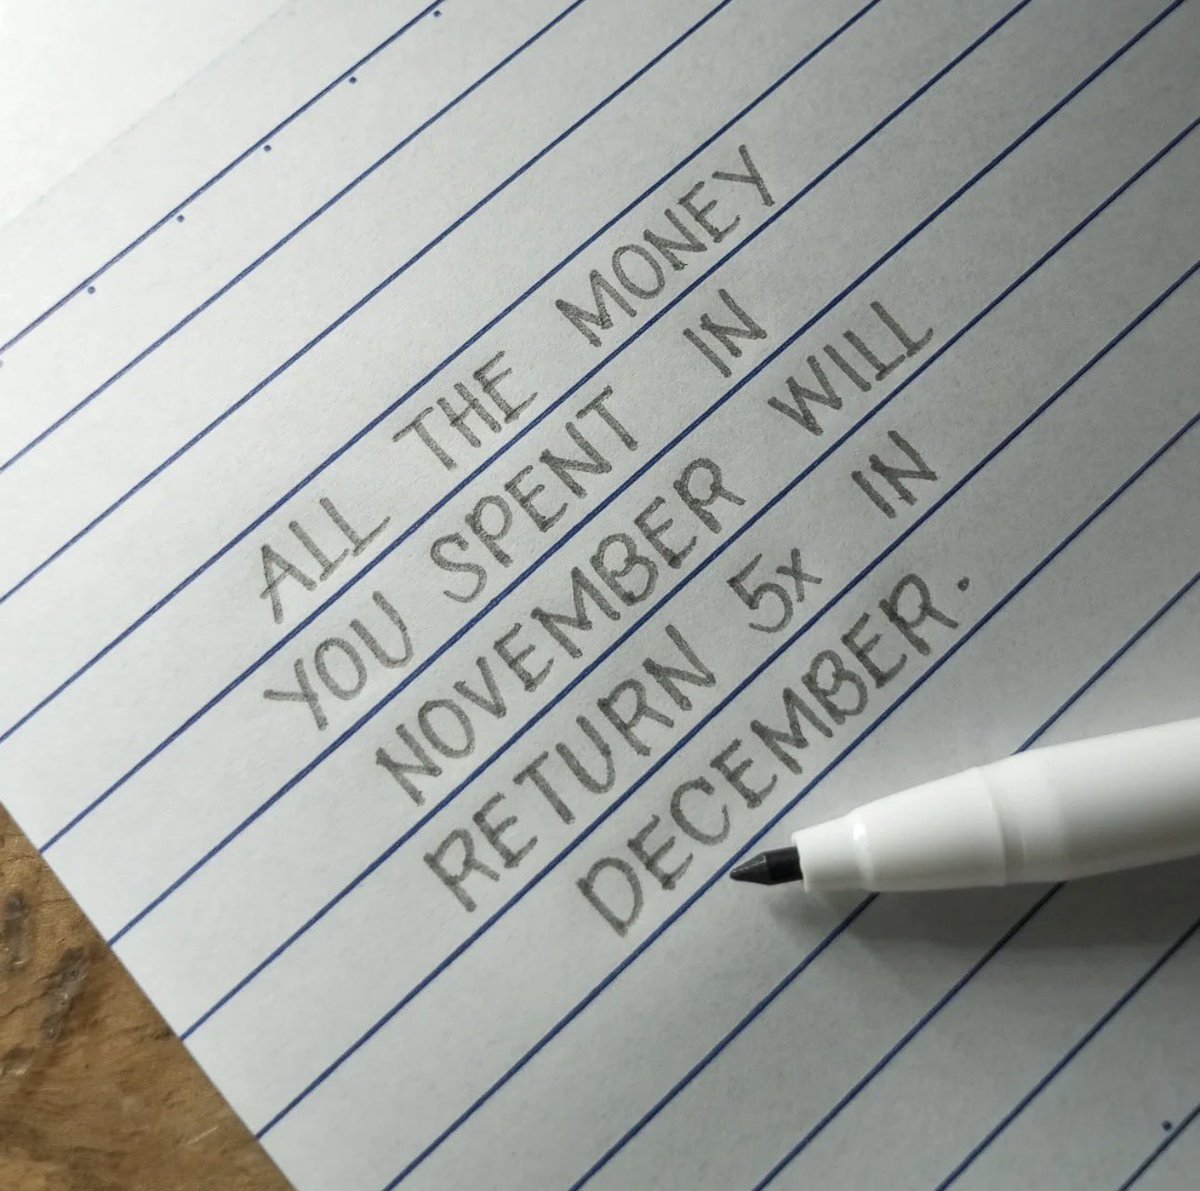 ALL THE MONEY
YOU SPENT IN
NOVEMBER WILL
RETURN 5x IN
DECEMBER.